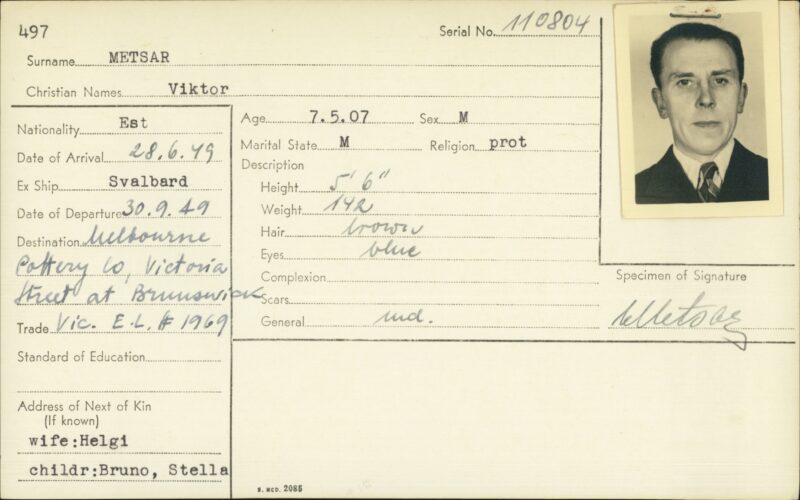 497
Serial No. 110804
Surname METSAR
Christian Names Viktor
Nationality Est
Date of Arrival 28.6.49
Ex Ship Svalbard
Date of Departure 30.9.49
Destination Melbourne
Pottery Co, Victoria
Street at Brunswick
Trade Vic. E.L. # 1969
Standard of Education
Address of Next of Kin
(If known)
wife:Helgi
childr:Bruno, Stella
Age 7.5.07 Sex M
Marital State M Religion prot
Description
Height 5' 6"
Weight 142
Hair brown
Eyes blue
Complexion
Scars
General md.
Specimen of Signature
VMetsar
N. MCD. 2085